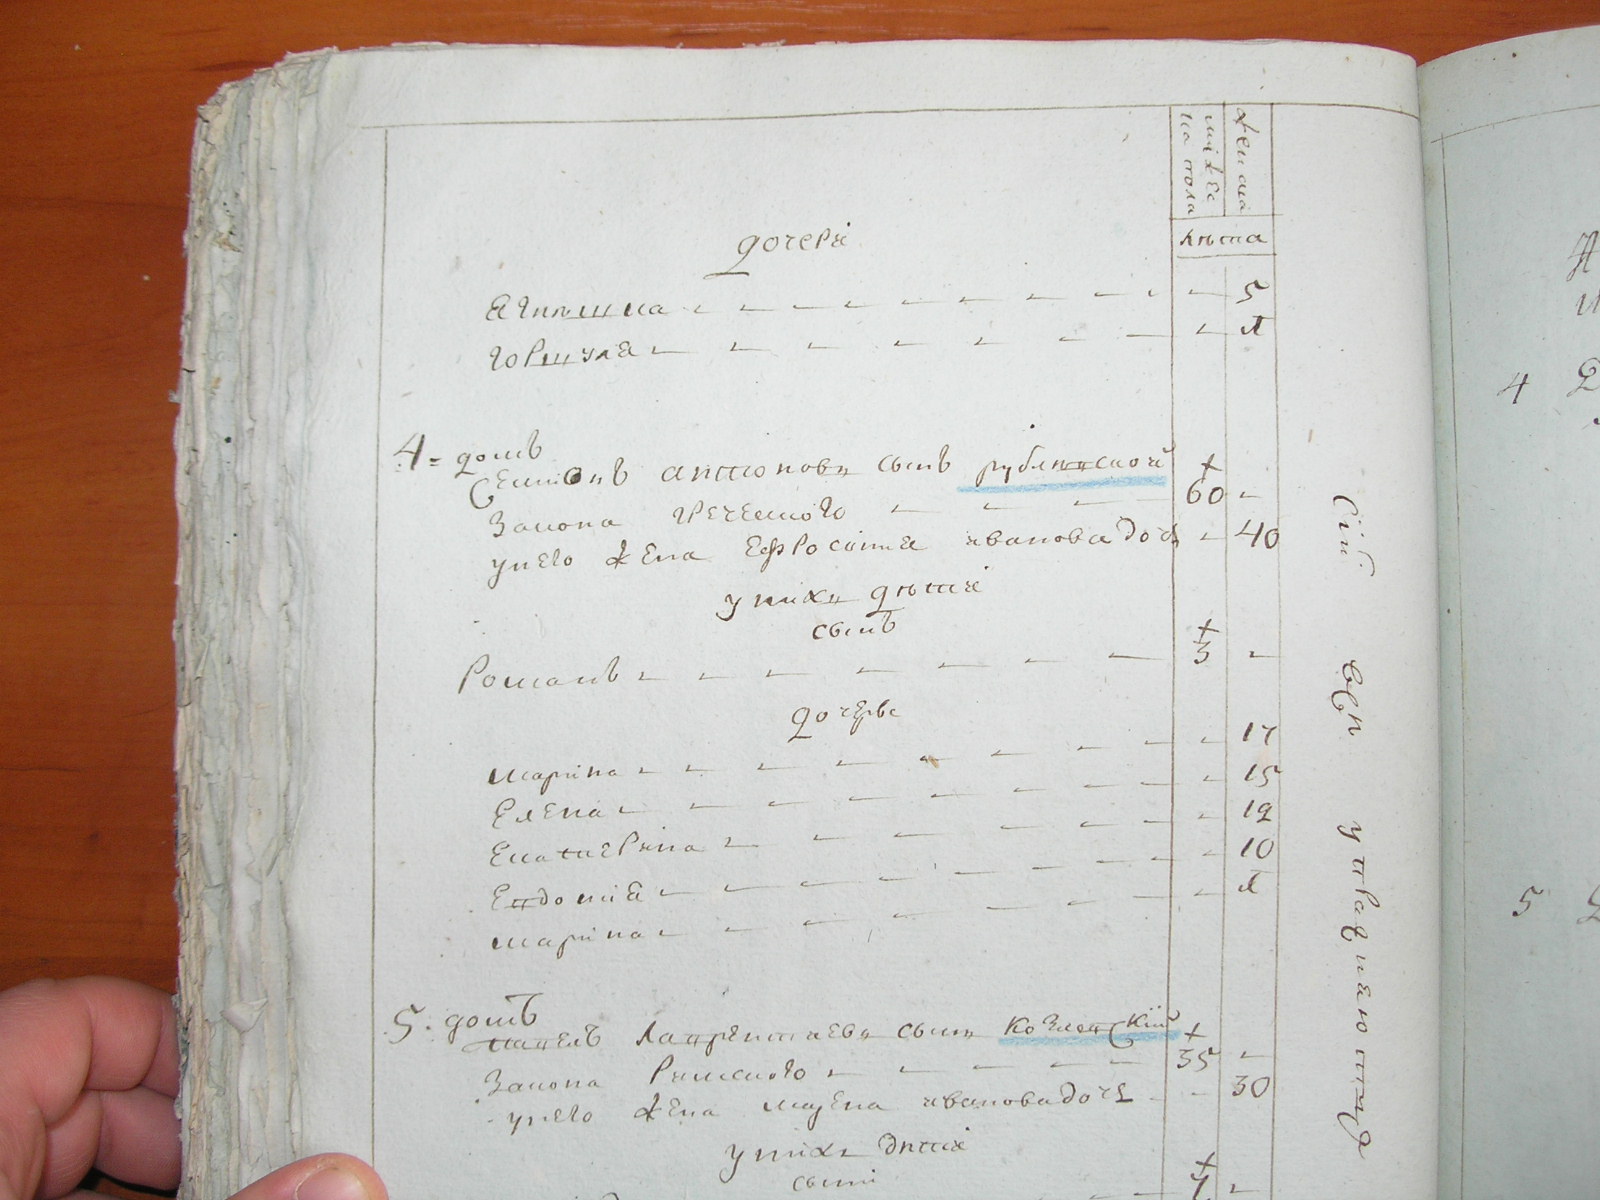 мужеска пола
женска
лѣта
дочери
Агнѣшка 5
Горшуля 1
4 = домъ
Семионъ антоновъ сынъ рублевской 60
Закона греческого
у него жена Ефросиния иванова дочь 40
у нихъ дѣти
сынъ
Романъ 5
дочерѣ
марина 17
Елена 15
Екатерина 12
Евдокиа 10
марина 1
5: домъ
павелъ лаврентиевъ сынъ Козлевский 35
Закона Римского
у него жена иванова дочь 30
у нихъ дѣти
сыни
4
5